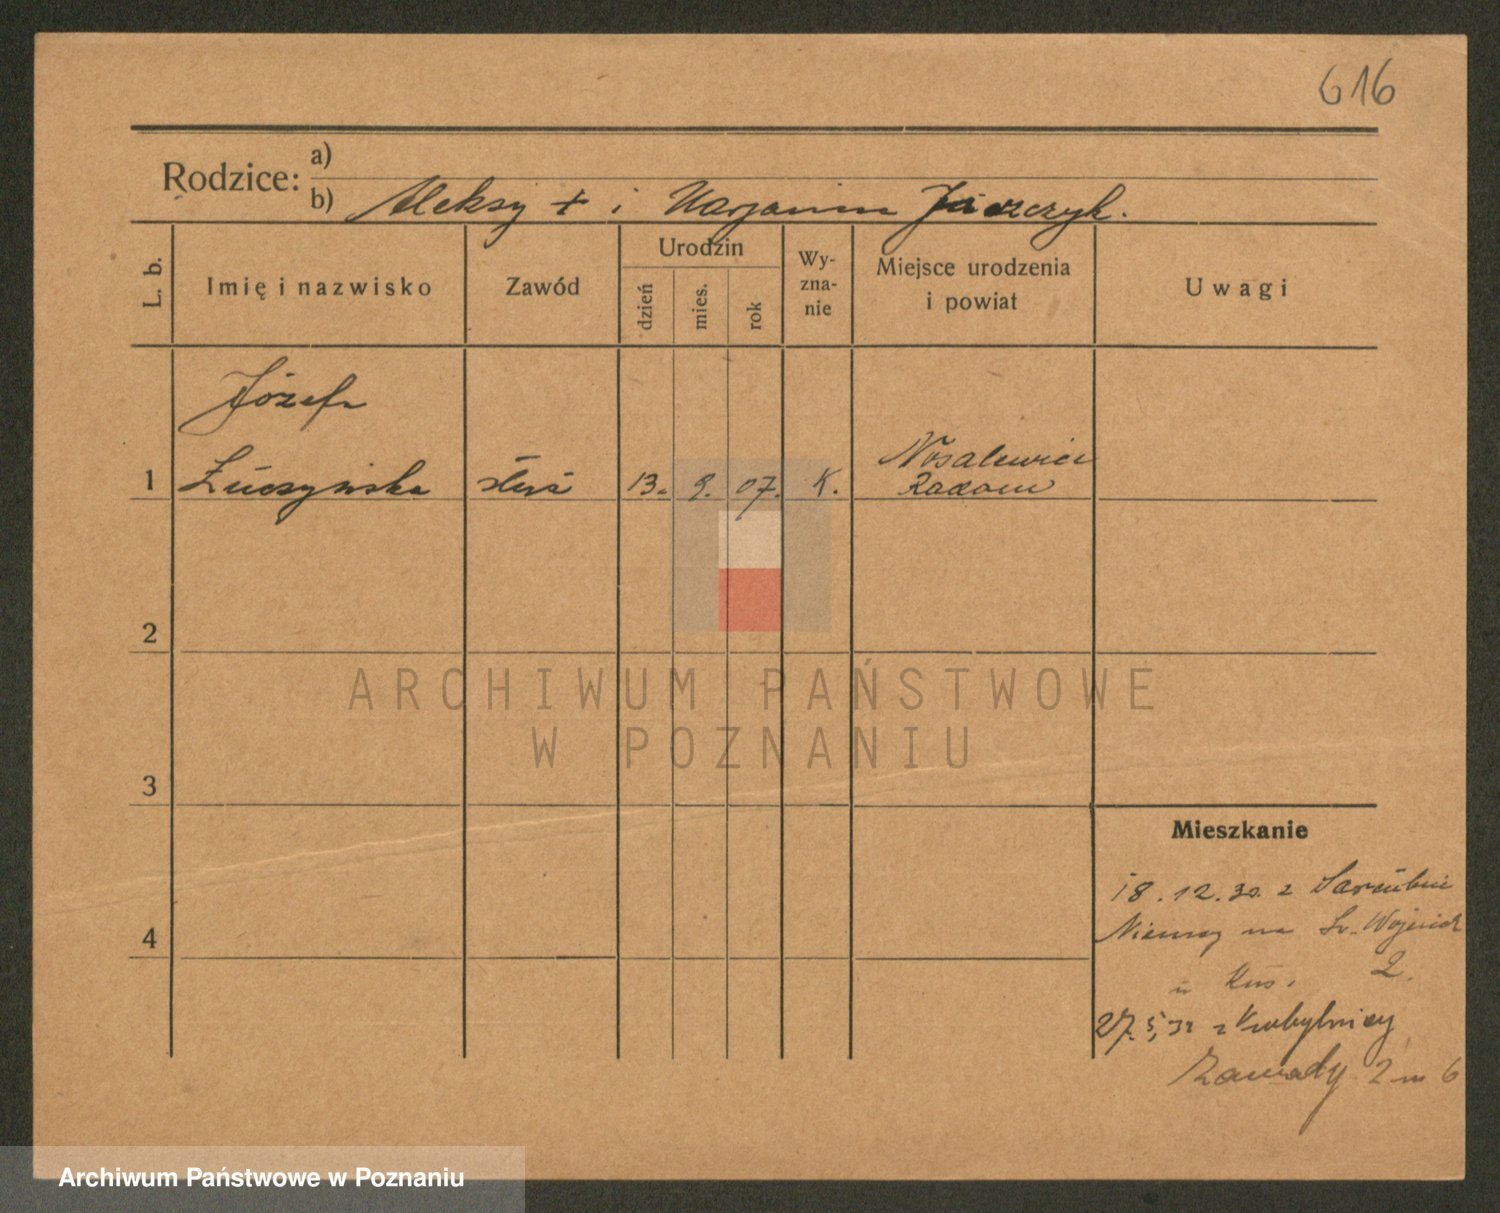 616
Rodzice: a)
b) Aleksy + i Marjanna
L. b.
Imię i nazwisko
Zawód
Urodzin
dzień
mies.
rok
Wy-
zna-
nie
Miejsce urodzenia
i powiat
Uwagi
Józefa
1 Łuczyńska 13. 9. 07. K. Nosalewice
Radom
2
3
4
ARCHIWUM PAŃSTWOWE
W POZNANIU
Mieszkanie
18.12.30. z
na Św. Wojciech
2.
27.5.32 z Kobylnicy
Zawady 2 m 6
Archiwum Państwowe w Poznaniu